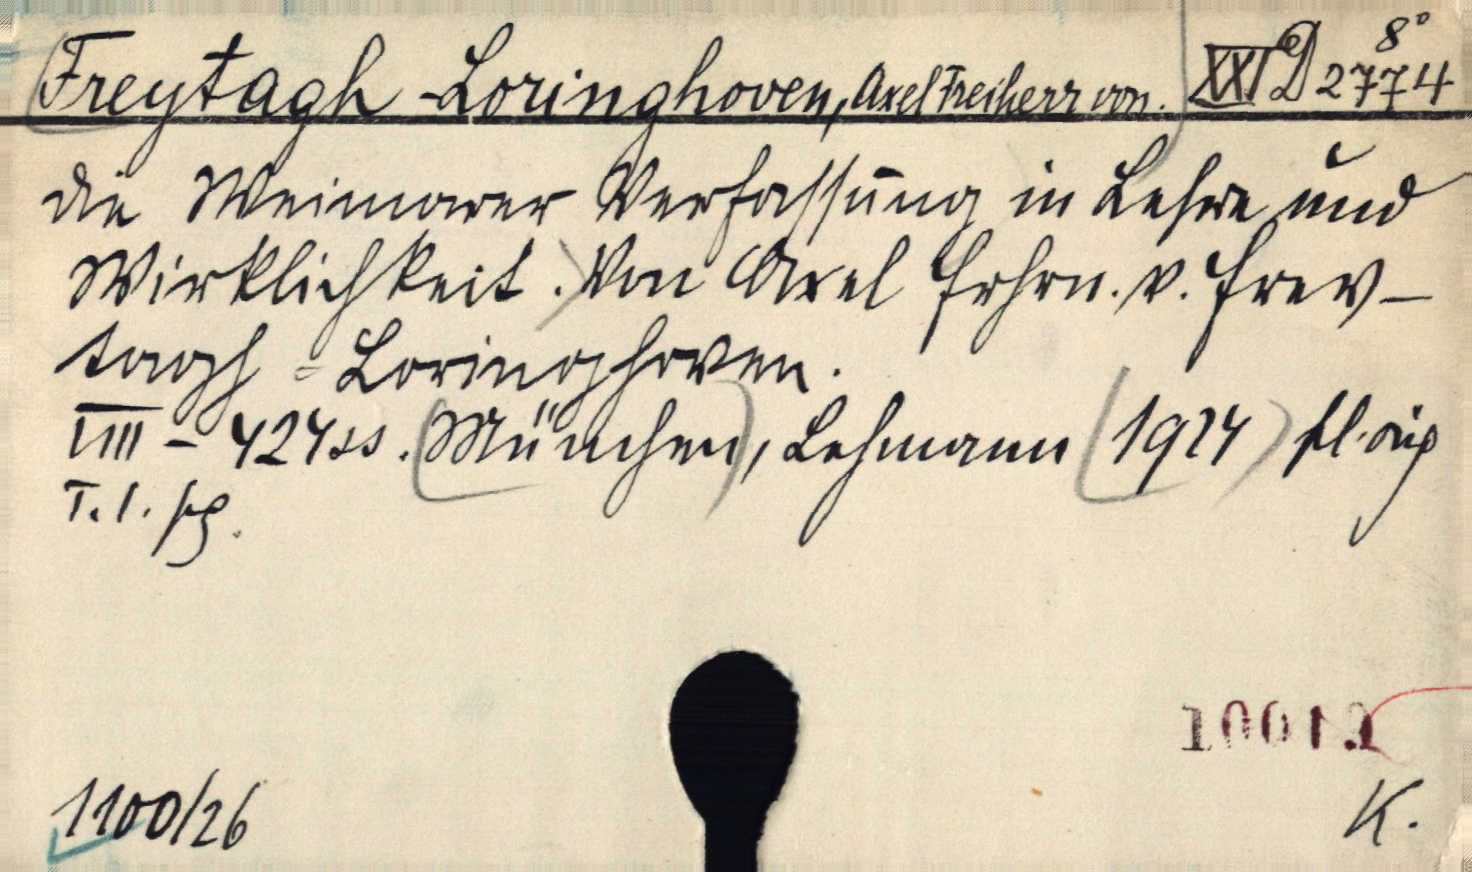 Freytagh-Loringhoven, Axel Freiherr von. XXI D 8° 2774
Die Weimarer Verfassung in Lehre und
Wirklichkeit. Von Axel Frhrn. v. Frey-
tagh=Loringhoven.
VIII - 424 SS. (München), Lehmann (1924)
T. 1.
10012
1100/26
K.